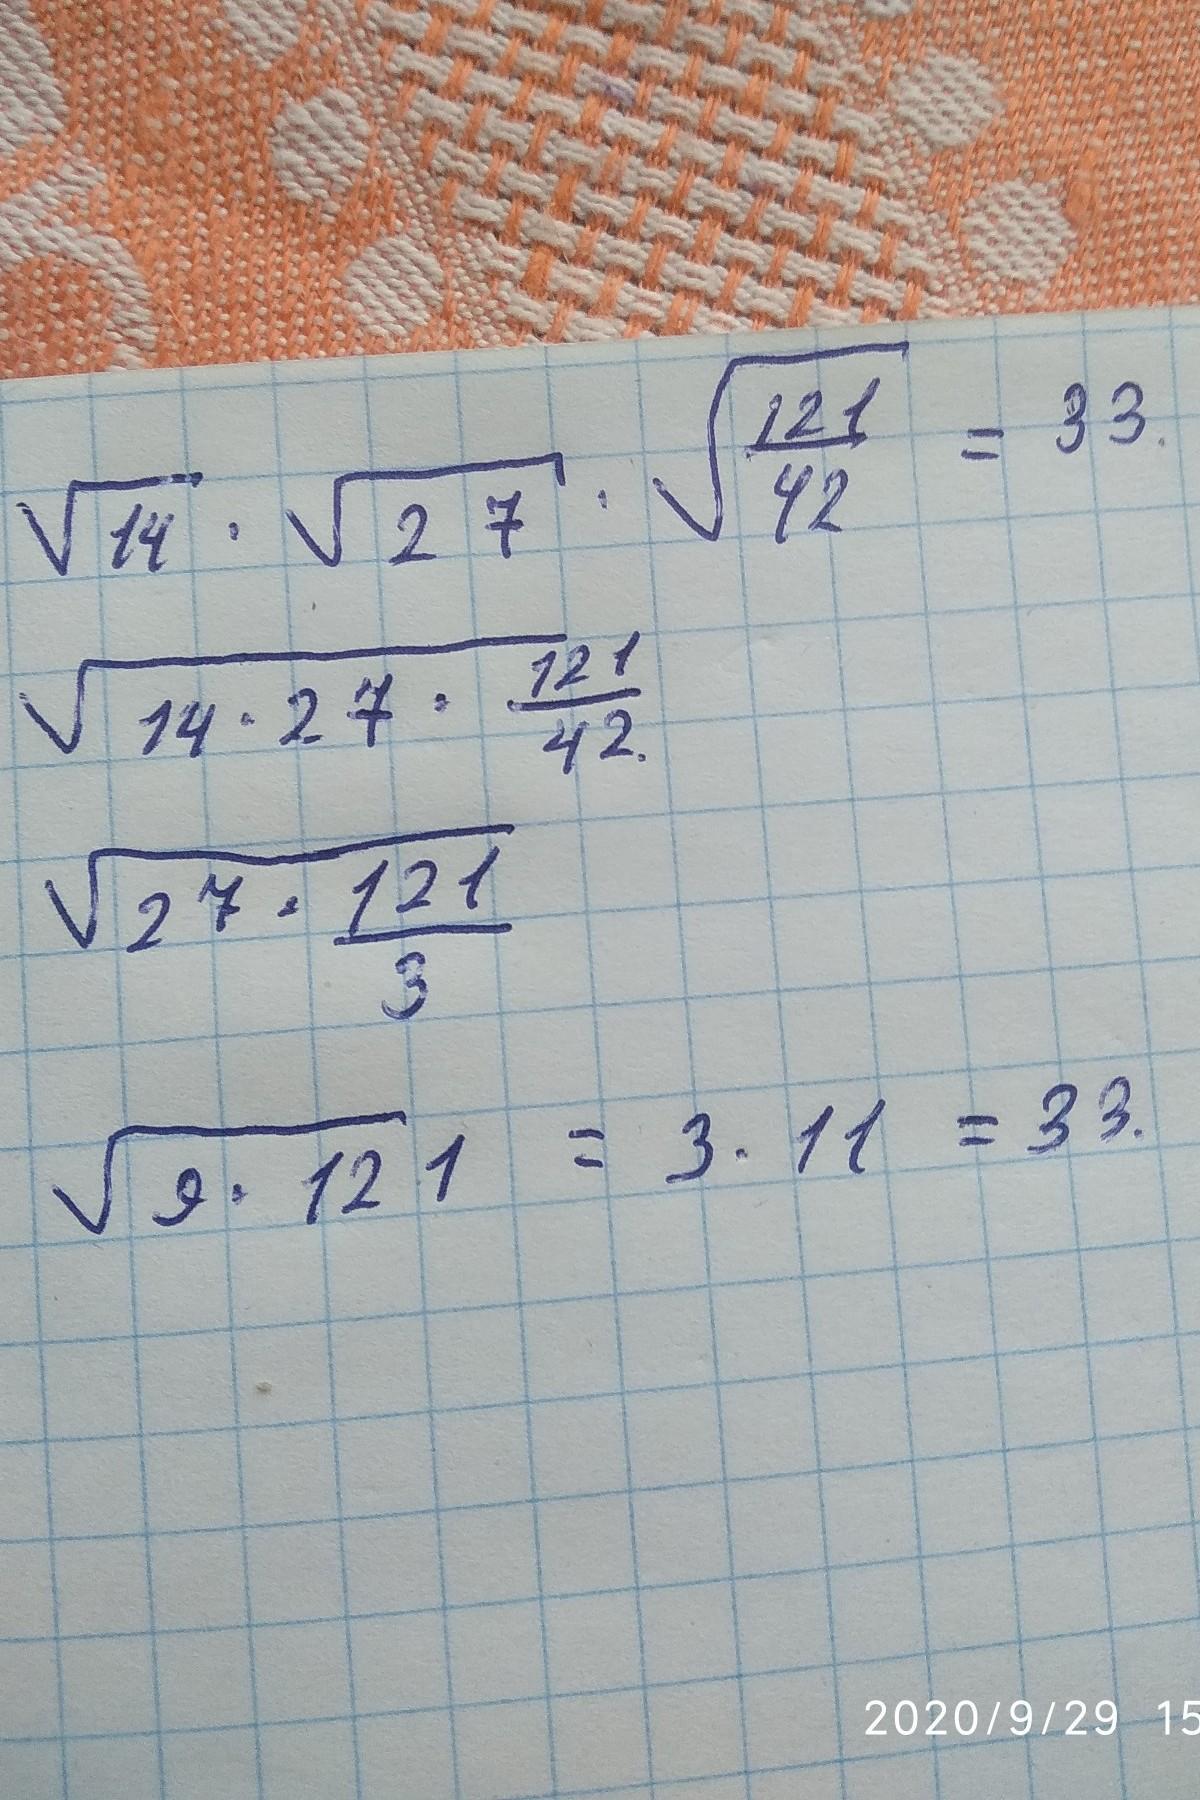 √14 · √27 · √(121/42) = 33.
√(14 · 27 · 121/42.)
√(27 · 121/3)
√(9 · 121) = 3 · 11 = 33.
2020/9/29 15